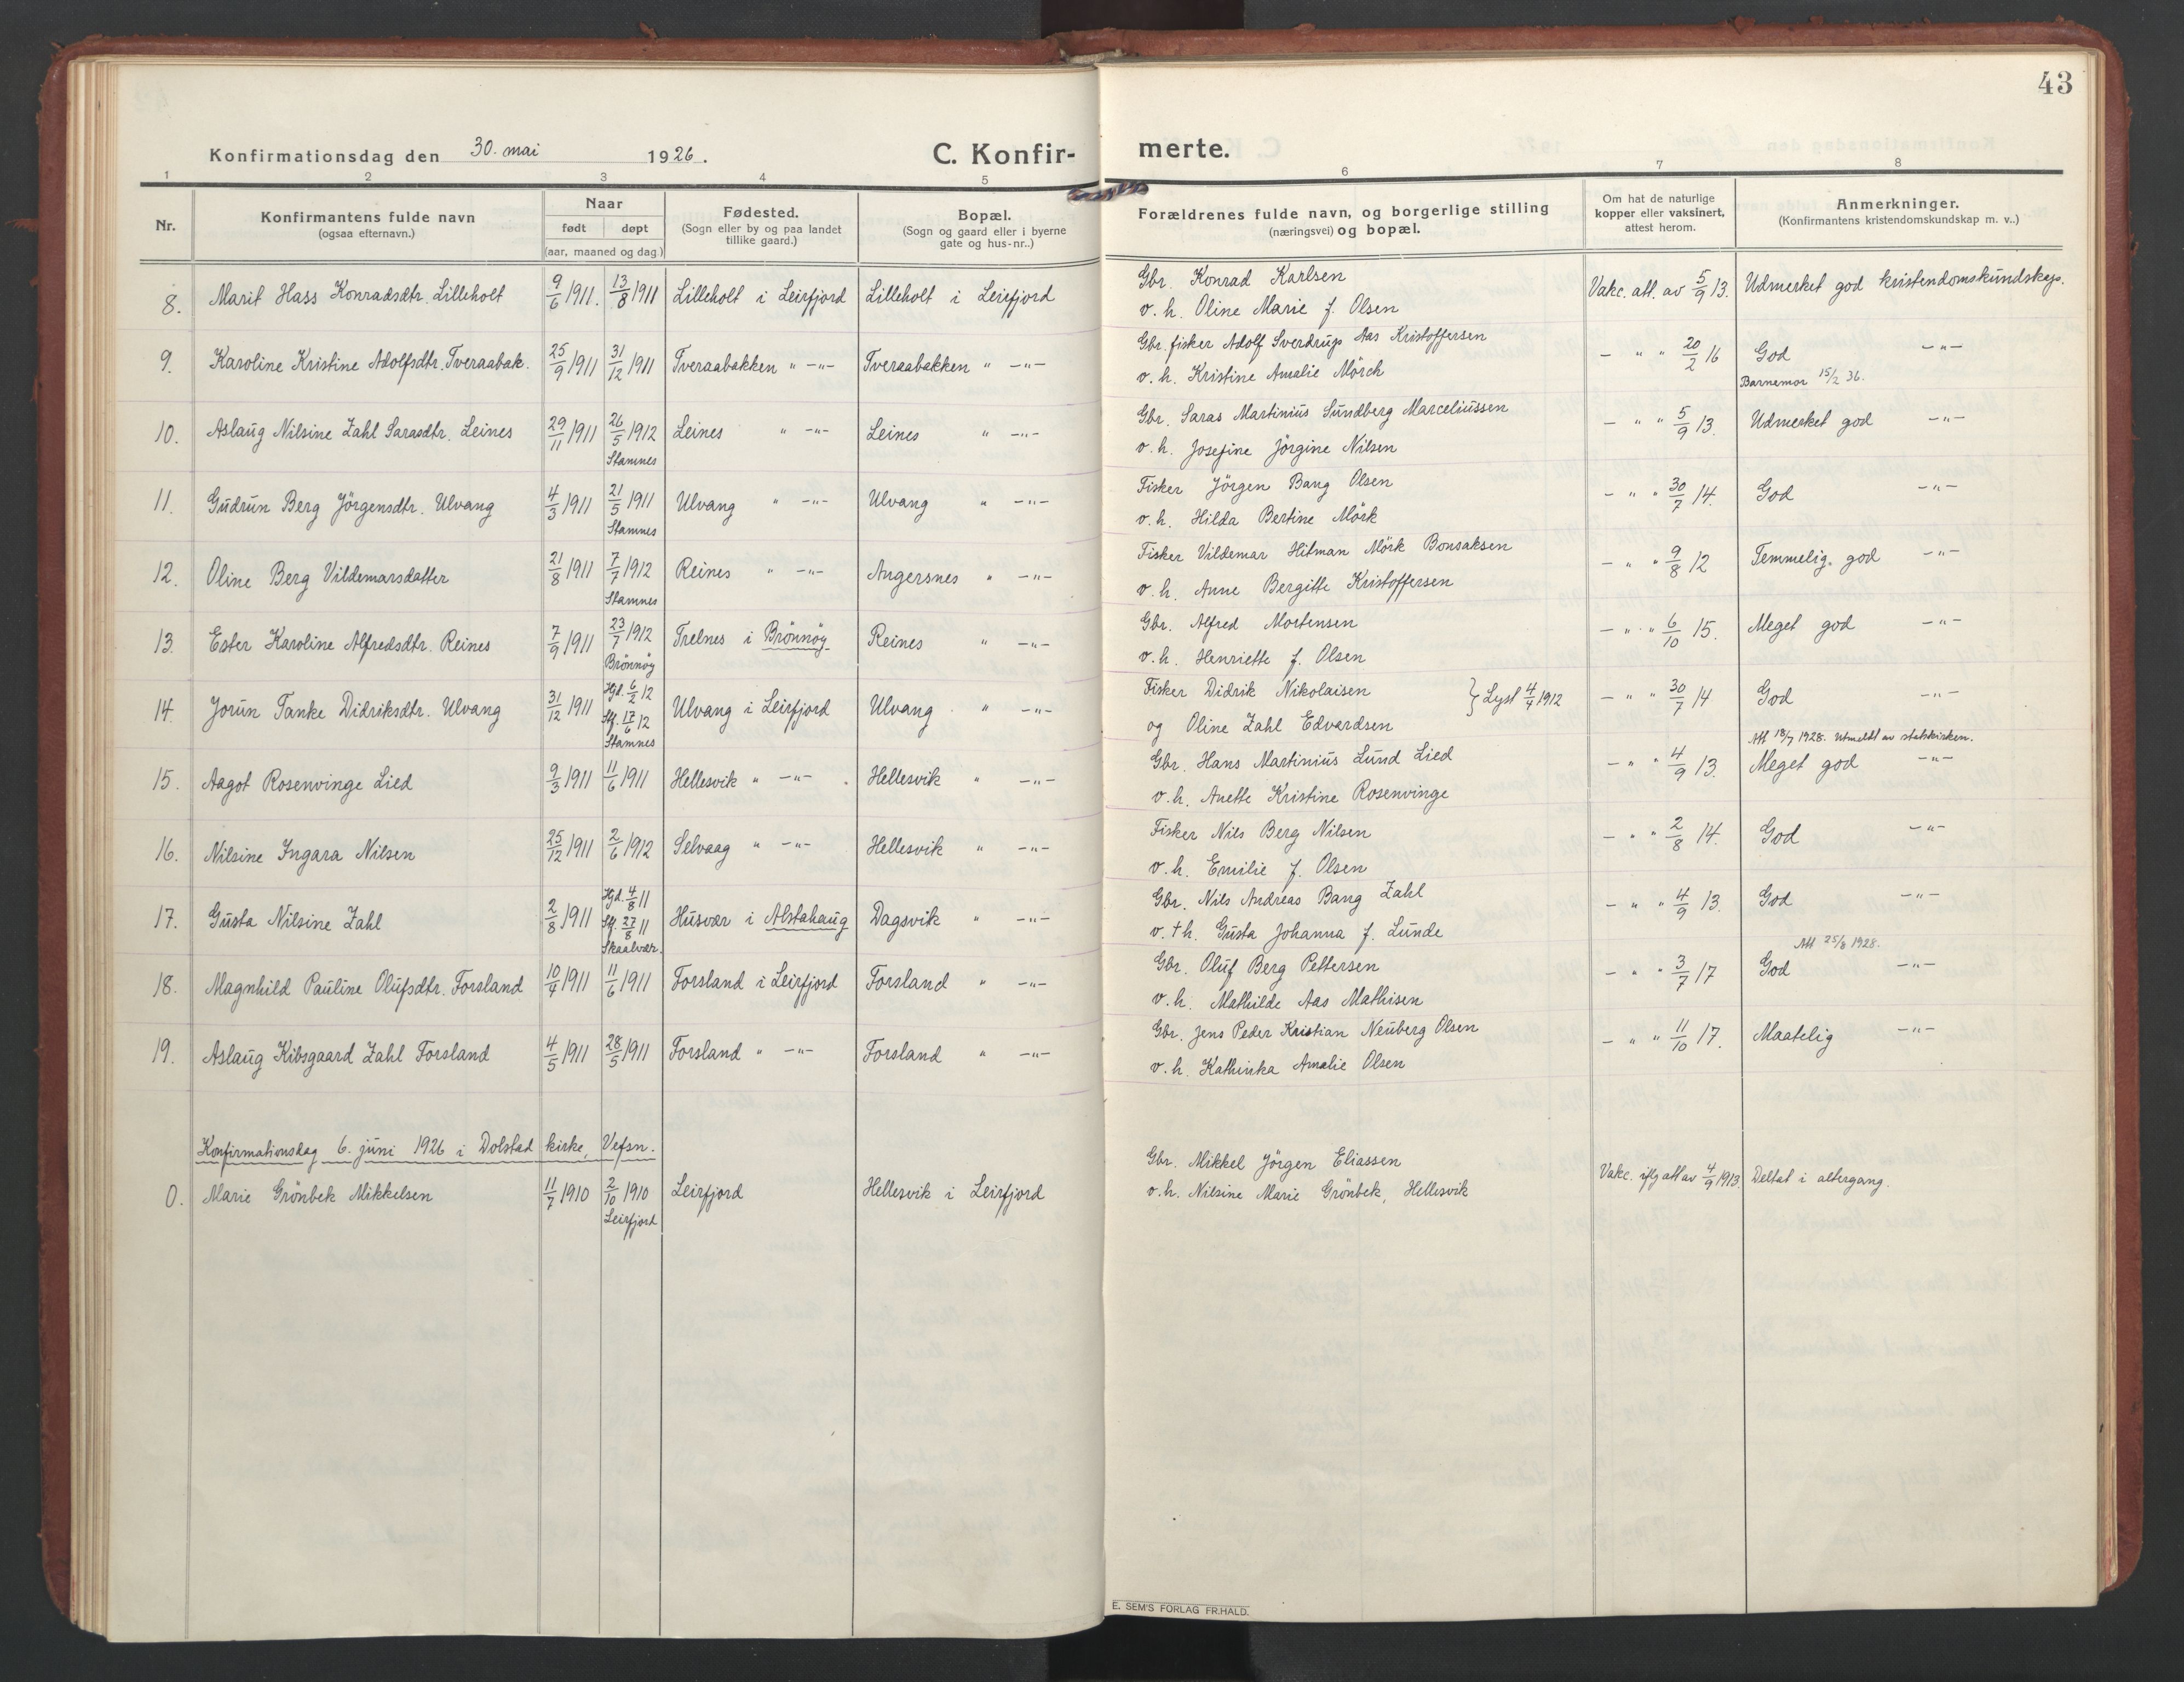 43
Konfirmationsdag den 30. mai 1926. C. Konfirmerte.
1 2 3 4 5 6 7 8
Nr.
Konfirmantens fulde navn
(ogsaa efternavn.)
Naar
født døpt
(aar, maaned og dag)
Fødested.
(Sogn eller by og paa landet
tillike gaard.)
Bopæl.
(Sogn og gaard eller i byerne
gate og hus-nr..)
Forældrenes fulde navn, og borgerlige stilling
(næringsvei) og bopæl.
Om hat de naturlige
kopper eller vaksinert,
attest herom.
Anmerkninger.
(Konfirmantens kristendomskundskap m. v..)
8. Marit Hass Konradsdtr. Lilleholt 9/6 1911. 13/8 1911 Lilleholt i Leirfjord Lilleholt i Leirfjord Gbr. Konrad Karlsen Vakc. att. av 5/9 13. Udmerket god kristendomskundskap.
v. h. Oline Marie f. Olsen
9. Karoline Kristine Adolfsdtr. Tveraabak. 25/9 1911 31/12 1911 Tveraabakken " -"- Tveraabakken " -"- Gbr. fisker Adolf Sverdrup Aas Kristoffersen - " " 20/2 16 God -"-
v. h. Kristine Amalie Mörch Barnemor 15/2 36.
10. Aslaug Nilsine Zahl Sarasdtr. Leines 29/11 1911 26/5 1912 Leines " -"- Leines " -"- Gbr. Saras Martinius Sundberg Marceliussen - " " 5/9 13. Udmerket god -"-
Stamnes v. h. Josefine Jörgine Nilsen
11. Gudrun Berg Jörgensdtr. Ulvang 4/3 1911 21/5 1911 Ulvang " -"- Ulvang " -"- Fisker Jörgen Bang Olsen - " " 30/7 14. God -"-
Stamnes v. h. Hilda Bertine Mörk
12. Oline Berg Vildemarsdatter 21/8 1911 7/7 1912 Reines " -"- Angersnes " -"- Fisker Vildemar Hitman Mörk Bonsaksen - " " 9/8 12 Temmelig god -"-
Stamnes v. h. Anne Bergitte Kristoffersen
13. Ester Karoline Alfredsdtr. Reines 7/9 1911 23/7 1912 Trelnes i Brönnöy Reines " -"- Gbr. Alfred Mortensen - " " 6/10 15. Meget god -"-
Brönnöy v. h. Henriette f. Olsen
14. Jorun Tanke Didriksdtr. Ulvang 31/12 1911 Hjd. 6/2 12 Stf. 17/6 12 Ulvang i Leirfjord Ulvang " -"- Fisker Didrik Nikolaisen } Lyst 4/4 1912 - " " 30/7 14 God -"-
Stamnes og Oline Zahl Edvardsen
Att 18/7 1928. Utmeldt av statskirken.
15. Aagot Rosenvinge Lied 9/3 1911 11/6 1911 Hellesvik " -"- Hellesvik " -"- Gbr. Hans Martinius Lund Lied - " " 4/9 13. Meget god -"-
v. h. Anette Kristine Rosenvinge
16. Nilsine Ingara Nilsen 25/12 1911 2/6 1912 Selvaag " -"- Hellesvik " -"- Fisker Nils Berg Nilsen - " " 2/8 14. God -"-
v. h. Emilie f. Olsen
17. Gusta Nilsine Zahl 2/8 1911 Hjd. 4/8 11 Stf. 27/8 11 Husvær i Alstahaug Dagsvik " -"- Gbr. Nils Andreas Bang Zahl - " " 4/9 13. God -"-
Skaalvær. v. + h. Gusta Johanna f. Lunde
Att 25/8 1928.
18. Magnhild Pauline Olufsdtr. Forsland 10/4 1911 11/6 1911 Forsland i Leirfjord Forsland " -"- Gbr. Oluf Berg Pettersen - " " 3/7 17 God -"-
v. h. Mathilde Aas Mathisen
19. Aslaug Kibsgaard Zahl Forsland 4/5 1911 28/5 1911 Forsland " -"- Forsland " -"- Gbr. Jens Peder Kristian Neuberg Olsen - " " 11/10 17. Maatelig -"-
v. h. Kathinka Amalie Olsen
Konfirmationsdag 6. juni 1926 i Dolstad kirke, Vefsn.
0. Marie Grönbek Mikkelsen 11/7 1910 2/10 1910 Leirfjord Hellesvik i Leirfjord Gbr. Mikkel Jörgen Eliassen Vakc. iflg att av 4/9 1913. Deltat i altergang.
Leirfjord v. h. Nilsine Marie Grönbek, Hellesvik
E. SEM'S FORLAG FR.HALD.